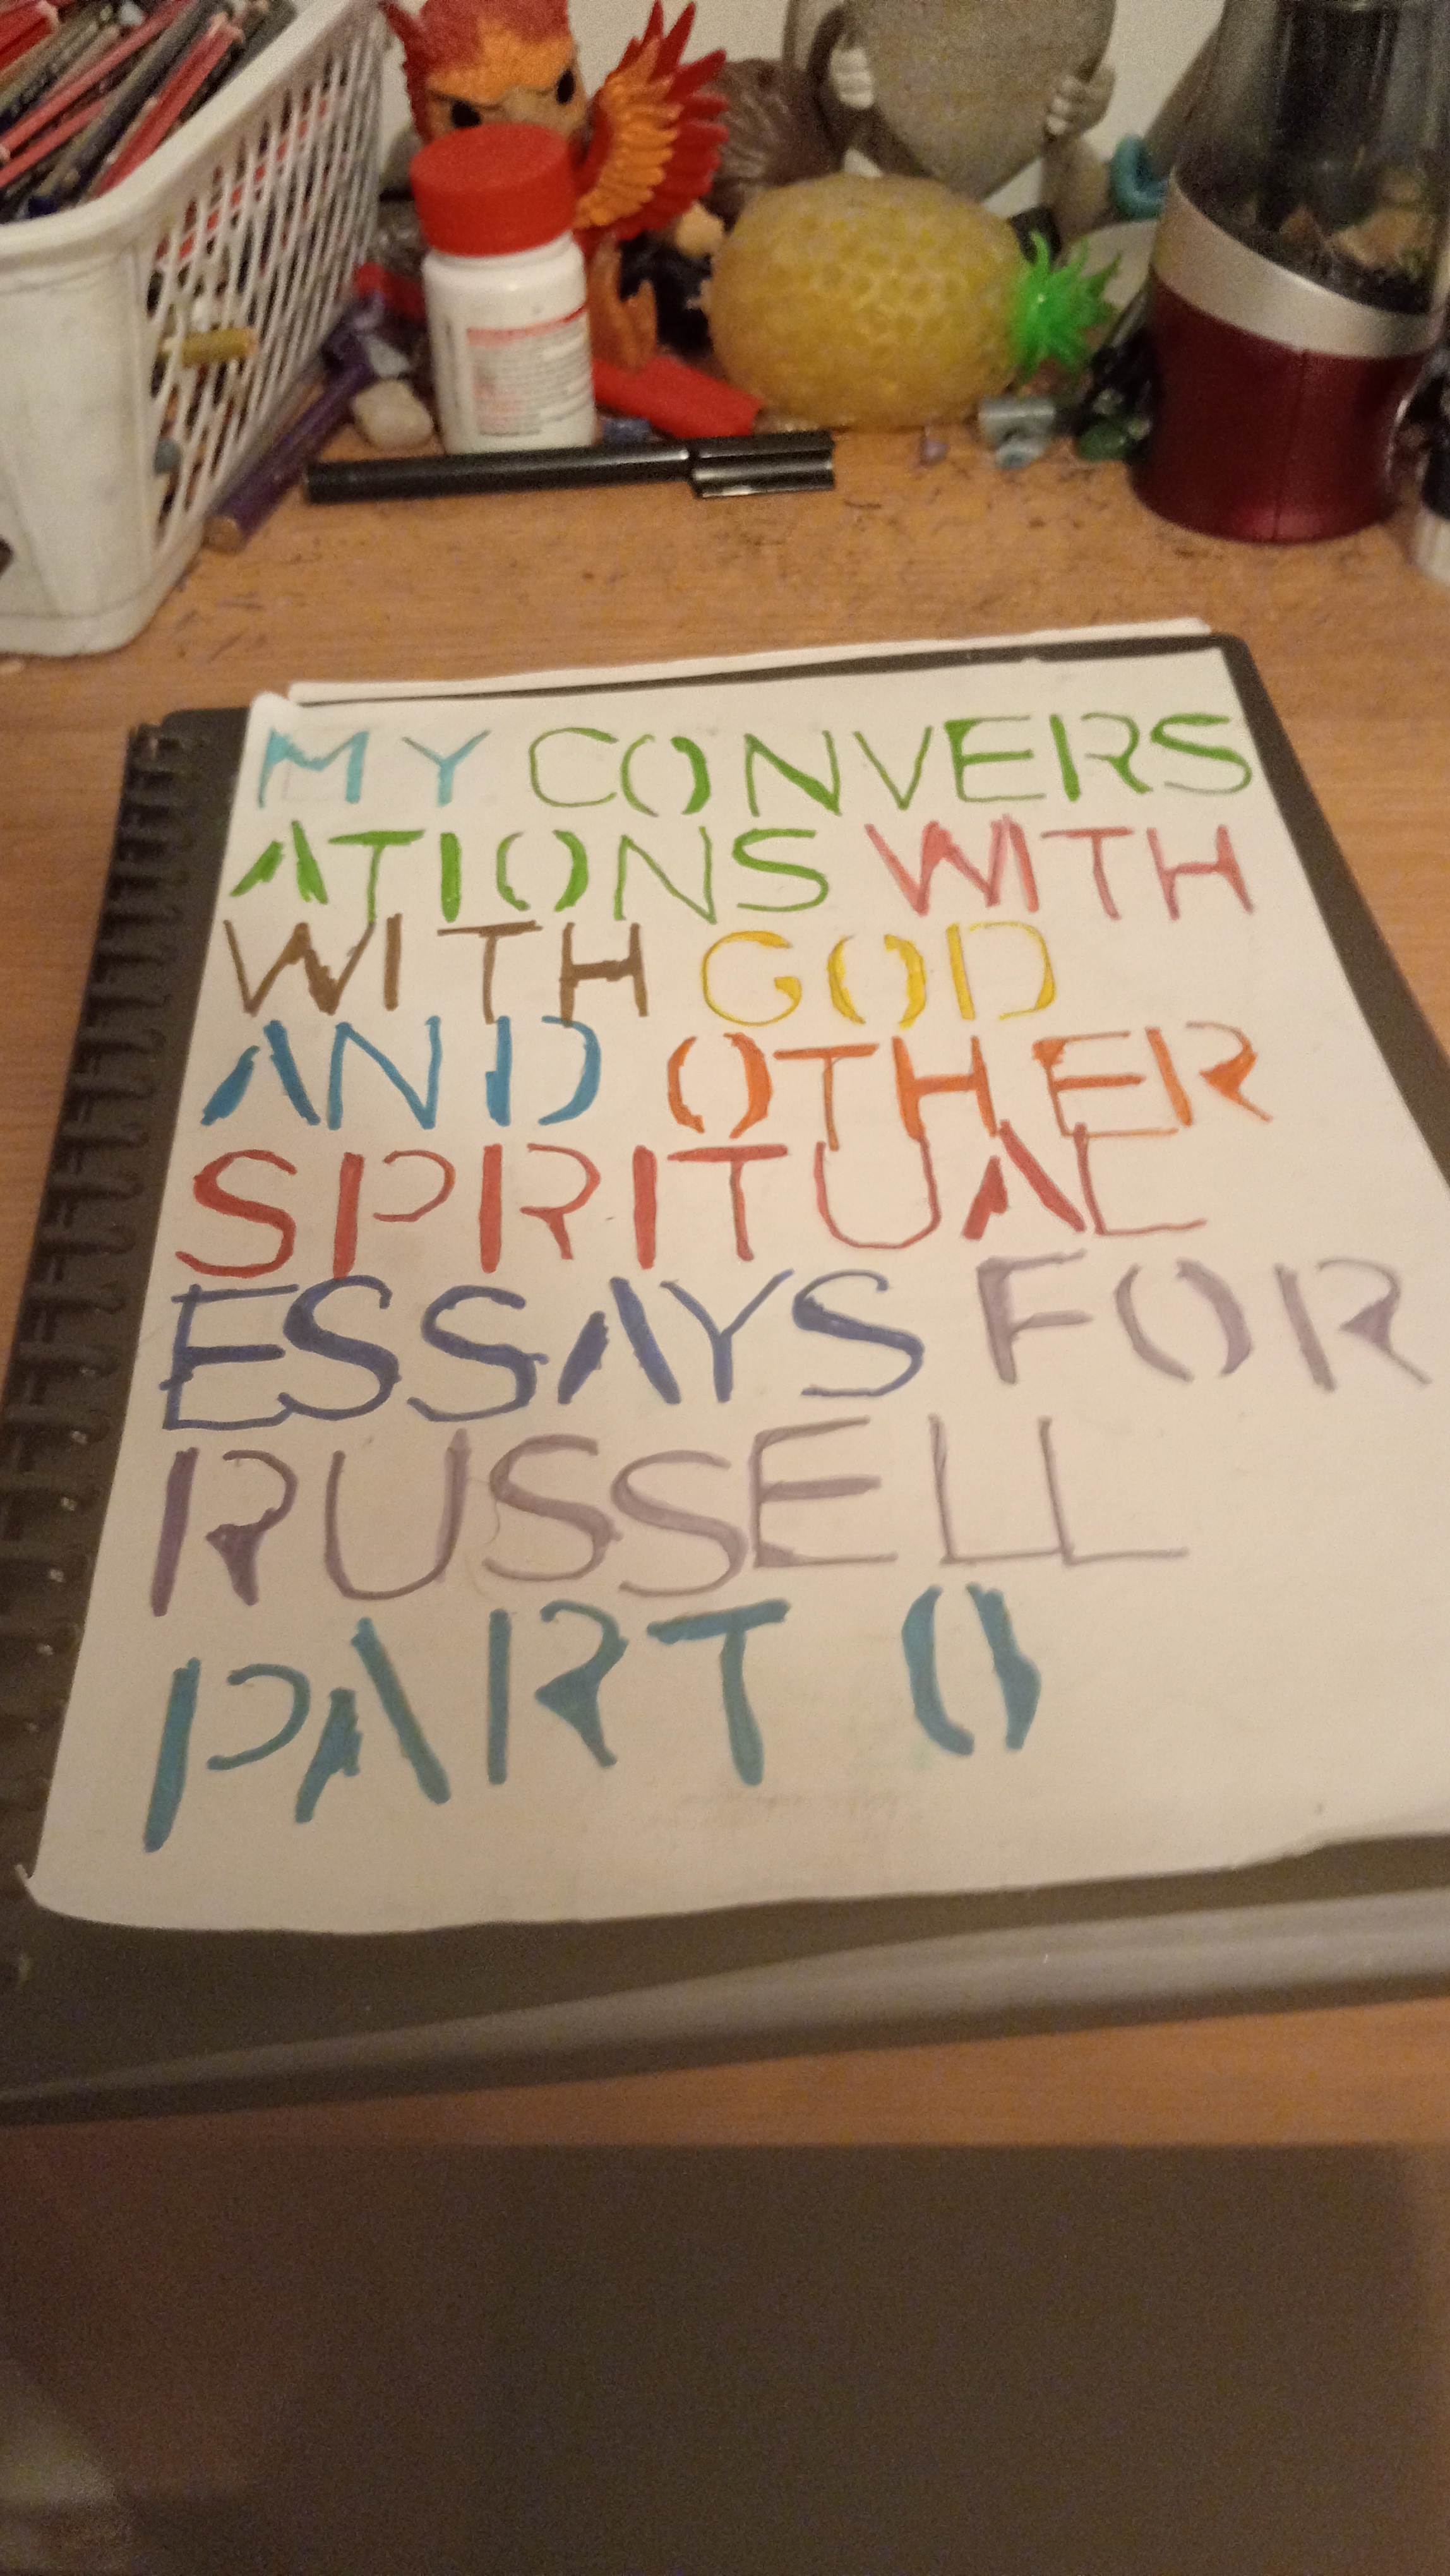 MY CONVERS
ATIONS WITH
WITH GOD
AND OTHER
SPRITUAL
ESSAYS FOR
RUSSELL
PART 0